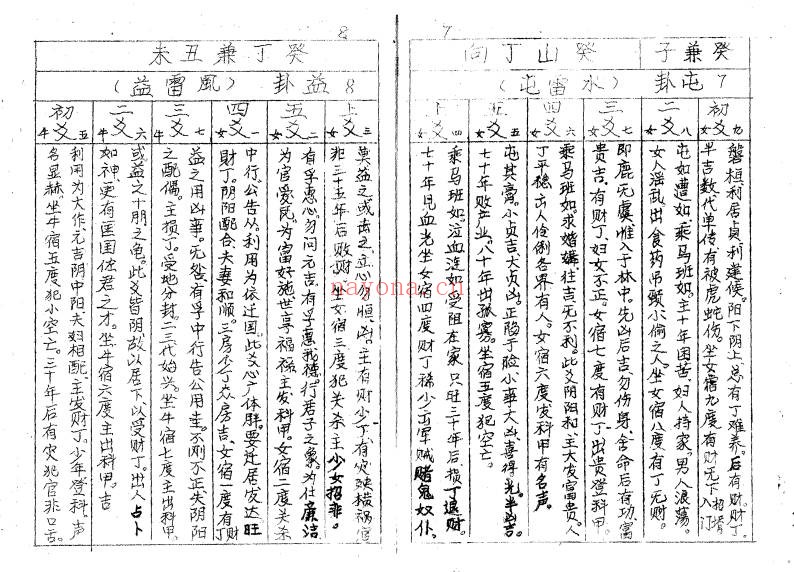 7
癸兼子 癸山丁向
7屯卦（水雷屯）
初爻 九 女
磐桓利居贞利建候。阳下阴上总有丁难养。后有财。财丁
半吉数代单传，有被虎蛇伤。坐女宿九度有财无下 招婿入门
二爻 八 女
屯如遭如，乘马班如。主十年困苦，妇人持家。男人浪荡。
女人淫乱出食药吊颈小偷之人。坐女宿八度有丁无财。
三爻 七 女
即鹿无虞，惟入于林中。先凶后吉，勿伤身，舍命后有功富
贵吉，有财丁，妇女不正。女宿七度有财丁，出贵登科甲。
四爻 六 女
乘马班如，求婚媾，往吉无不利。此爻阴阳和，主大发富贵。人
丁平稳，出人伶俐各界有人。女宿六度，发科甲有名声。
五爻 五 女
屯其膏。小贞吉，大贞凶。正隐于险，小葬大凶，喜得光，半凶吉。
七十年败产业，八十年出孤寡。坐宿五度犯空亡。
上爻 四 女
乘马班如，泣血涟如受阻在家，只旺三十年后损丁退财。
七十年见血光坐女宿四度财丁稀少出军贼赌鬼奴仆。
8
癸丁兼丑未
8益卦（风雷益）
上爻 三 女
莫益之或击之，立心勿恒，凶。主有财少丁，有灾殃横祸官
非三十五年后败财，坐女宿三度犯关杀主少女招非。
五爻 二 女
有孚惠心，勿问元吉，有孚惠我德，行君子之象。为仕廉洁
为官爱民为富好施世享福禄，主发科甲。女宿二度关杀
四爻 一 女
中行公告从。利用为依迁国，此爻心广体胖。要迁居发达旺
财丁。阴阳配合夫妻和顺。三房少丁众房吉，女宿一度有丁财
三爻 七 牛
益之用凶事。无咎有孚中行告公用圭。不刚不正失阴阳
之配偶。主损丁。受地分封。二三代始兴。坐牛宿七度主出科甲。
二爻 六 牛
或益之十朋之龟。此爻皆阴故以居下，以受财丁。出人占卜
如神，更有匡国佐君之才。坐牛宿六度主出科甲。吉
初爻 五 牛
利用为大作，元吉阴中阳夫妇相配，主发财丁。少年登科，声
名显赫。坐牛宿五度犯小空亡。三十年后有灾犯官非口舌。
nayona.cn